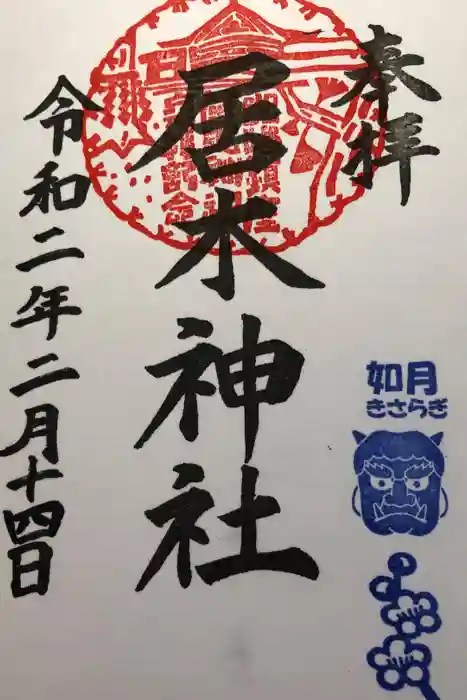 奉拝
居木神社
令和二年二月十四日
如月
きさらぎ